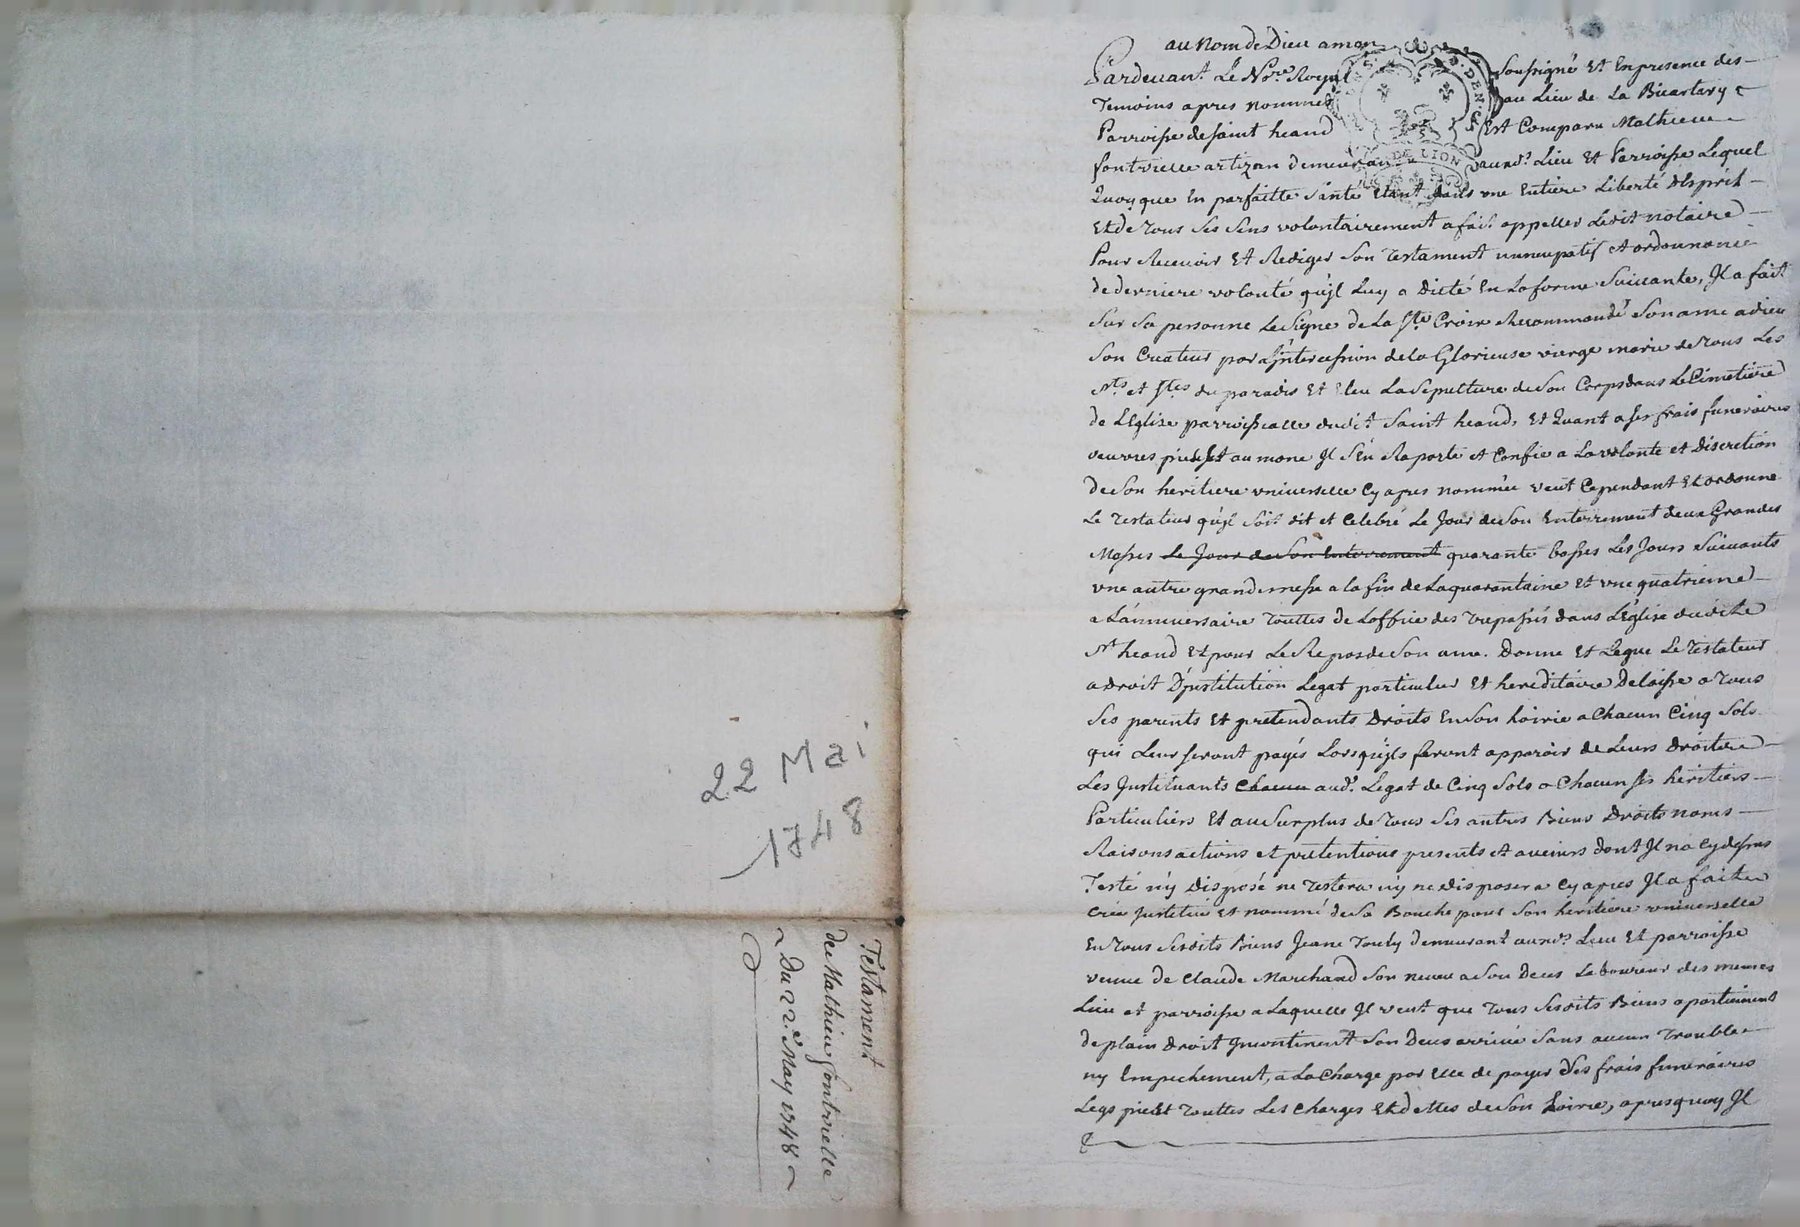 22 Mai
1748
Testament
de Mathieu fontvielle
Du 22e May 1748
au Nom de Dieu amen
Pardevant Le Nore Royal soussigné Et En presence des
Temoins apres nommes au Lieu de La
Parroisse de saint heand Est Comparu Mathieu
fontvielle artizan demeurant aud. Lieu Et Parroisse Lequel
Quoy que En parfaitte santé Etant dans vne Entiere Liberté dEsprit
Et de Tous ses sens volontairement a fait appeller Ledit notaire
Pour Recevoir Et Rediger Son Testament nuncupatif et ordonnance
de derniere volonté qujl Luy a dicté En La forme Suivante, Jl a fait
Sur Sa personne Le Signe de La Ste Croix Recommandé Son ame a dieu
Son Createur par Lintercession de la Glorieuse vierge marie de Tous Les
Sts et Stes du paradis Et Eleu La Sepulture de Son Corps dans Le Cimetiere
de LEglise parroissialle dudit Saint heand, Et Quant a ses frais funeraires
oeuvres pies Et aumone Jl Sen Raporte et Confie a La volonte et discretion
de Son heritiere vniverselle Cy apres nommée veut Cependant Et ordonne
Le Testateur qujl soit dit et Celebré Le Jour de Son Enterrement deux Grandes
Messes Le Jour de Son Enterrement quarante basses Les Jours Suivants
vne autre grande messe a la fin de La quarantaine Et vne quatrieme
a Lanniversaire Touttes de Loffice des Trepassés dans LEglise dudit
St heand Et pour Le Repos de Son ame. Donne Et Legue Le Testateur
a droit Djnstitution Legat particulier Et hereditaire Delaisse a Tous
Ses parents Et pretendants Droits En Son hoirie a Chacun Cinq Sols
qui Leur seront payés Lorsqujls feront apparoir de Leurs droits
Les Jnstituants Chacun aud. Legat de Cinq Sols a Chacun ses heritiers
Particuliers Et au Surplus de Tous Ses autres Biens Droits noms
Raisons actions et pretentions presents et avenirs dont Jl na Cy dessus
Testé ny Disposé ne Testera ny ne disposera Cy apres Jl a fait
Créé Jnstitué Et nommé de Sa Bouche pour Son heritiere vniverselle
En Tous Sesdits Biens Jeane demeurant aud. Lieu Et parroisse
veuve de Claude Marchand Son neveu a Son Deces Laboureur des memes
Lieu et parroisse a Laquelle Jl veut que Tous Sesdits Biens apartiennent
de plain droit Jncontinent Son Deces arrivé Sans aucun Trouble
ny Empechement, a La Charge par Elle de payer Ses frais funeraires
Legs pies Et Touttes Les Charges Et dettes de Son hoirie, apres quoy Jl